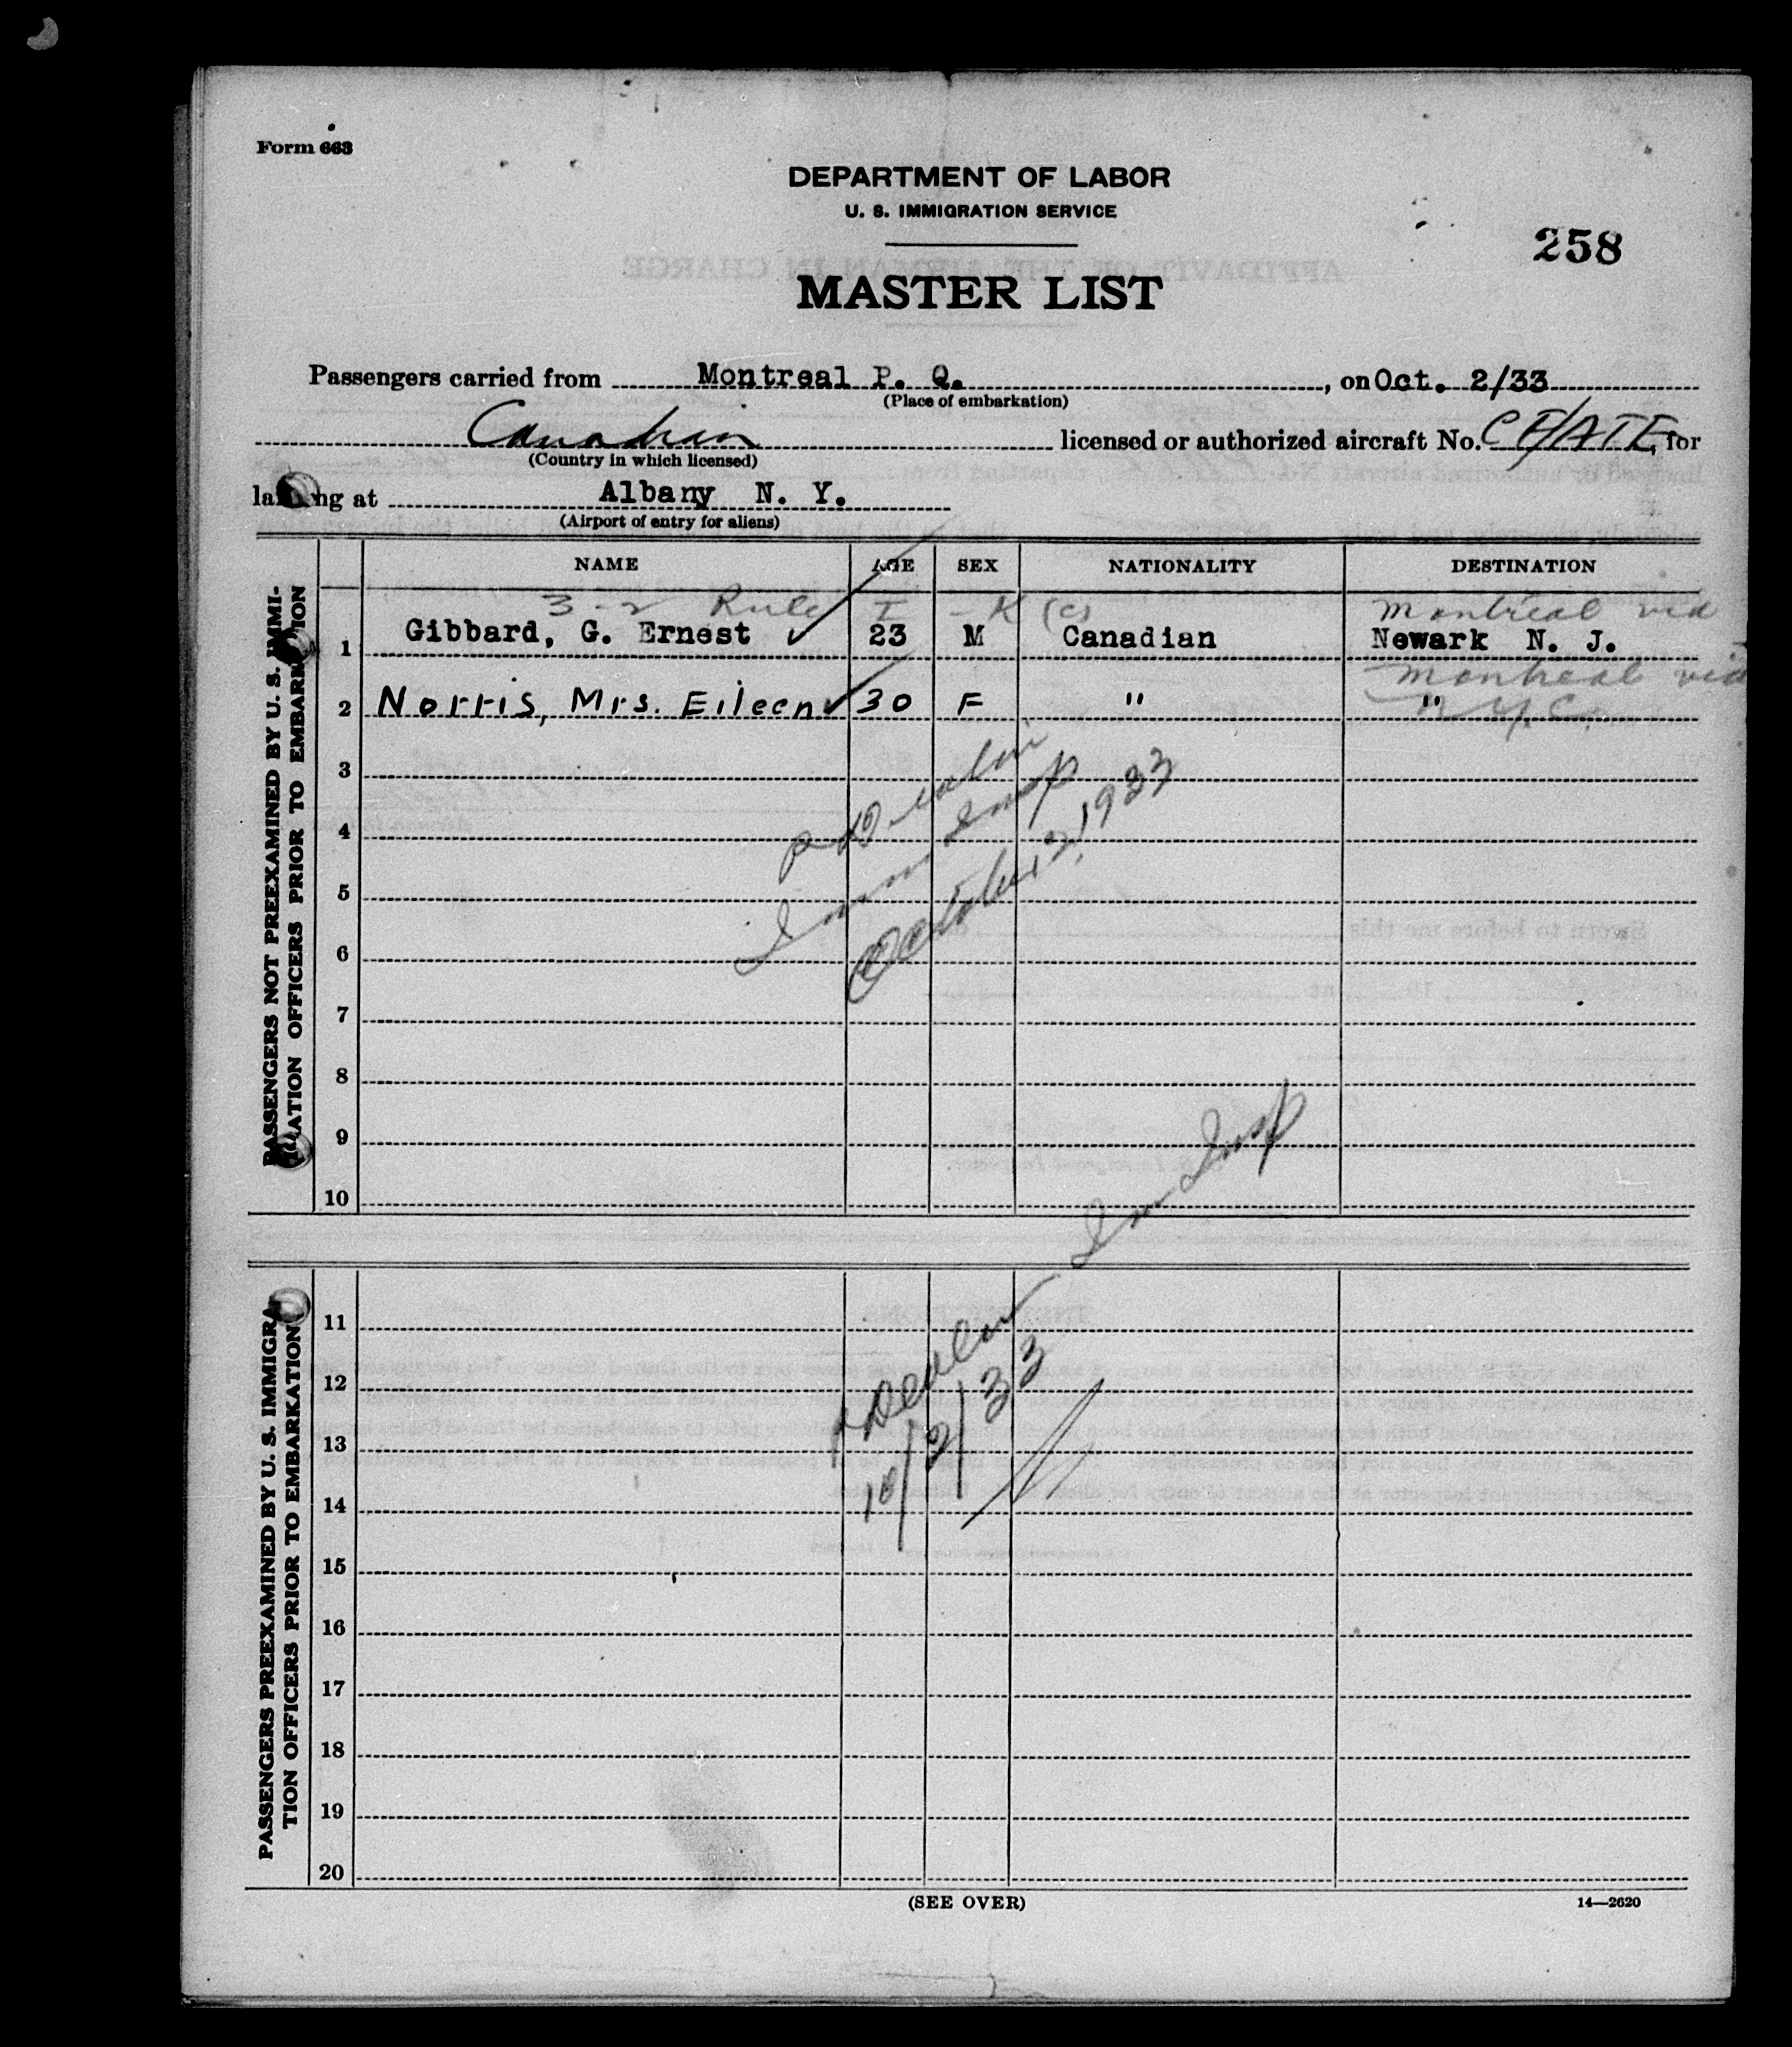 Form 663
DEPARTMENT OF LABOR
U. S. IMMIGRATION SERVICE
258
MASTER LIST
Passengers carried from Montreal P. Q. , on Oct. 2/33
(Place of embarkation)
Canadian licensed or authorized aircraft No. CF/ATE, for
(Country in which licensed)
landing at Albany N. Y.
(Airport of entry for aliens)
PASSENGERS NOT PREEXAMINED BY U. S. IMMI-
GRATION OFFICERS PRIOR TO EMBARKATION
NAME AGE SEX NATIONALITY DESTINATION
3-2 Rule I - K (c) Montreal via
1 Gibbard, G. Ernest ✓ 23 M Canadian Newark N. J.
Montreal via
2 Norris, Mrs. Eileen ✓ 30 F " "
N Y C.
3
4
5
6
7
8
9
10
Imm Insp
October 2, 1933
Imm Insp
PASSENGERS PREEXAMINED BY U. S. IMMIGRA-
TION OFFICERS PRIOR TO EMBARKATION
11
12
13
14
15
16
17
18
19
20
10/2/33
(SEE OVER)
14—2620